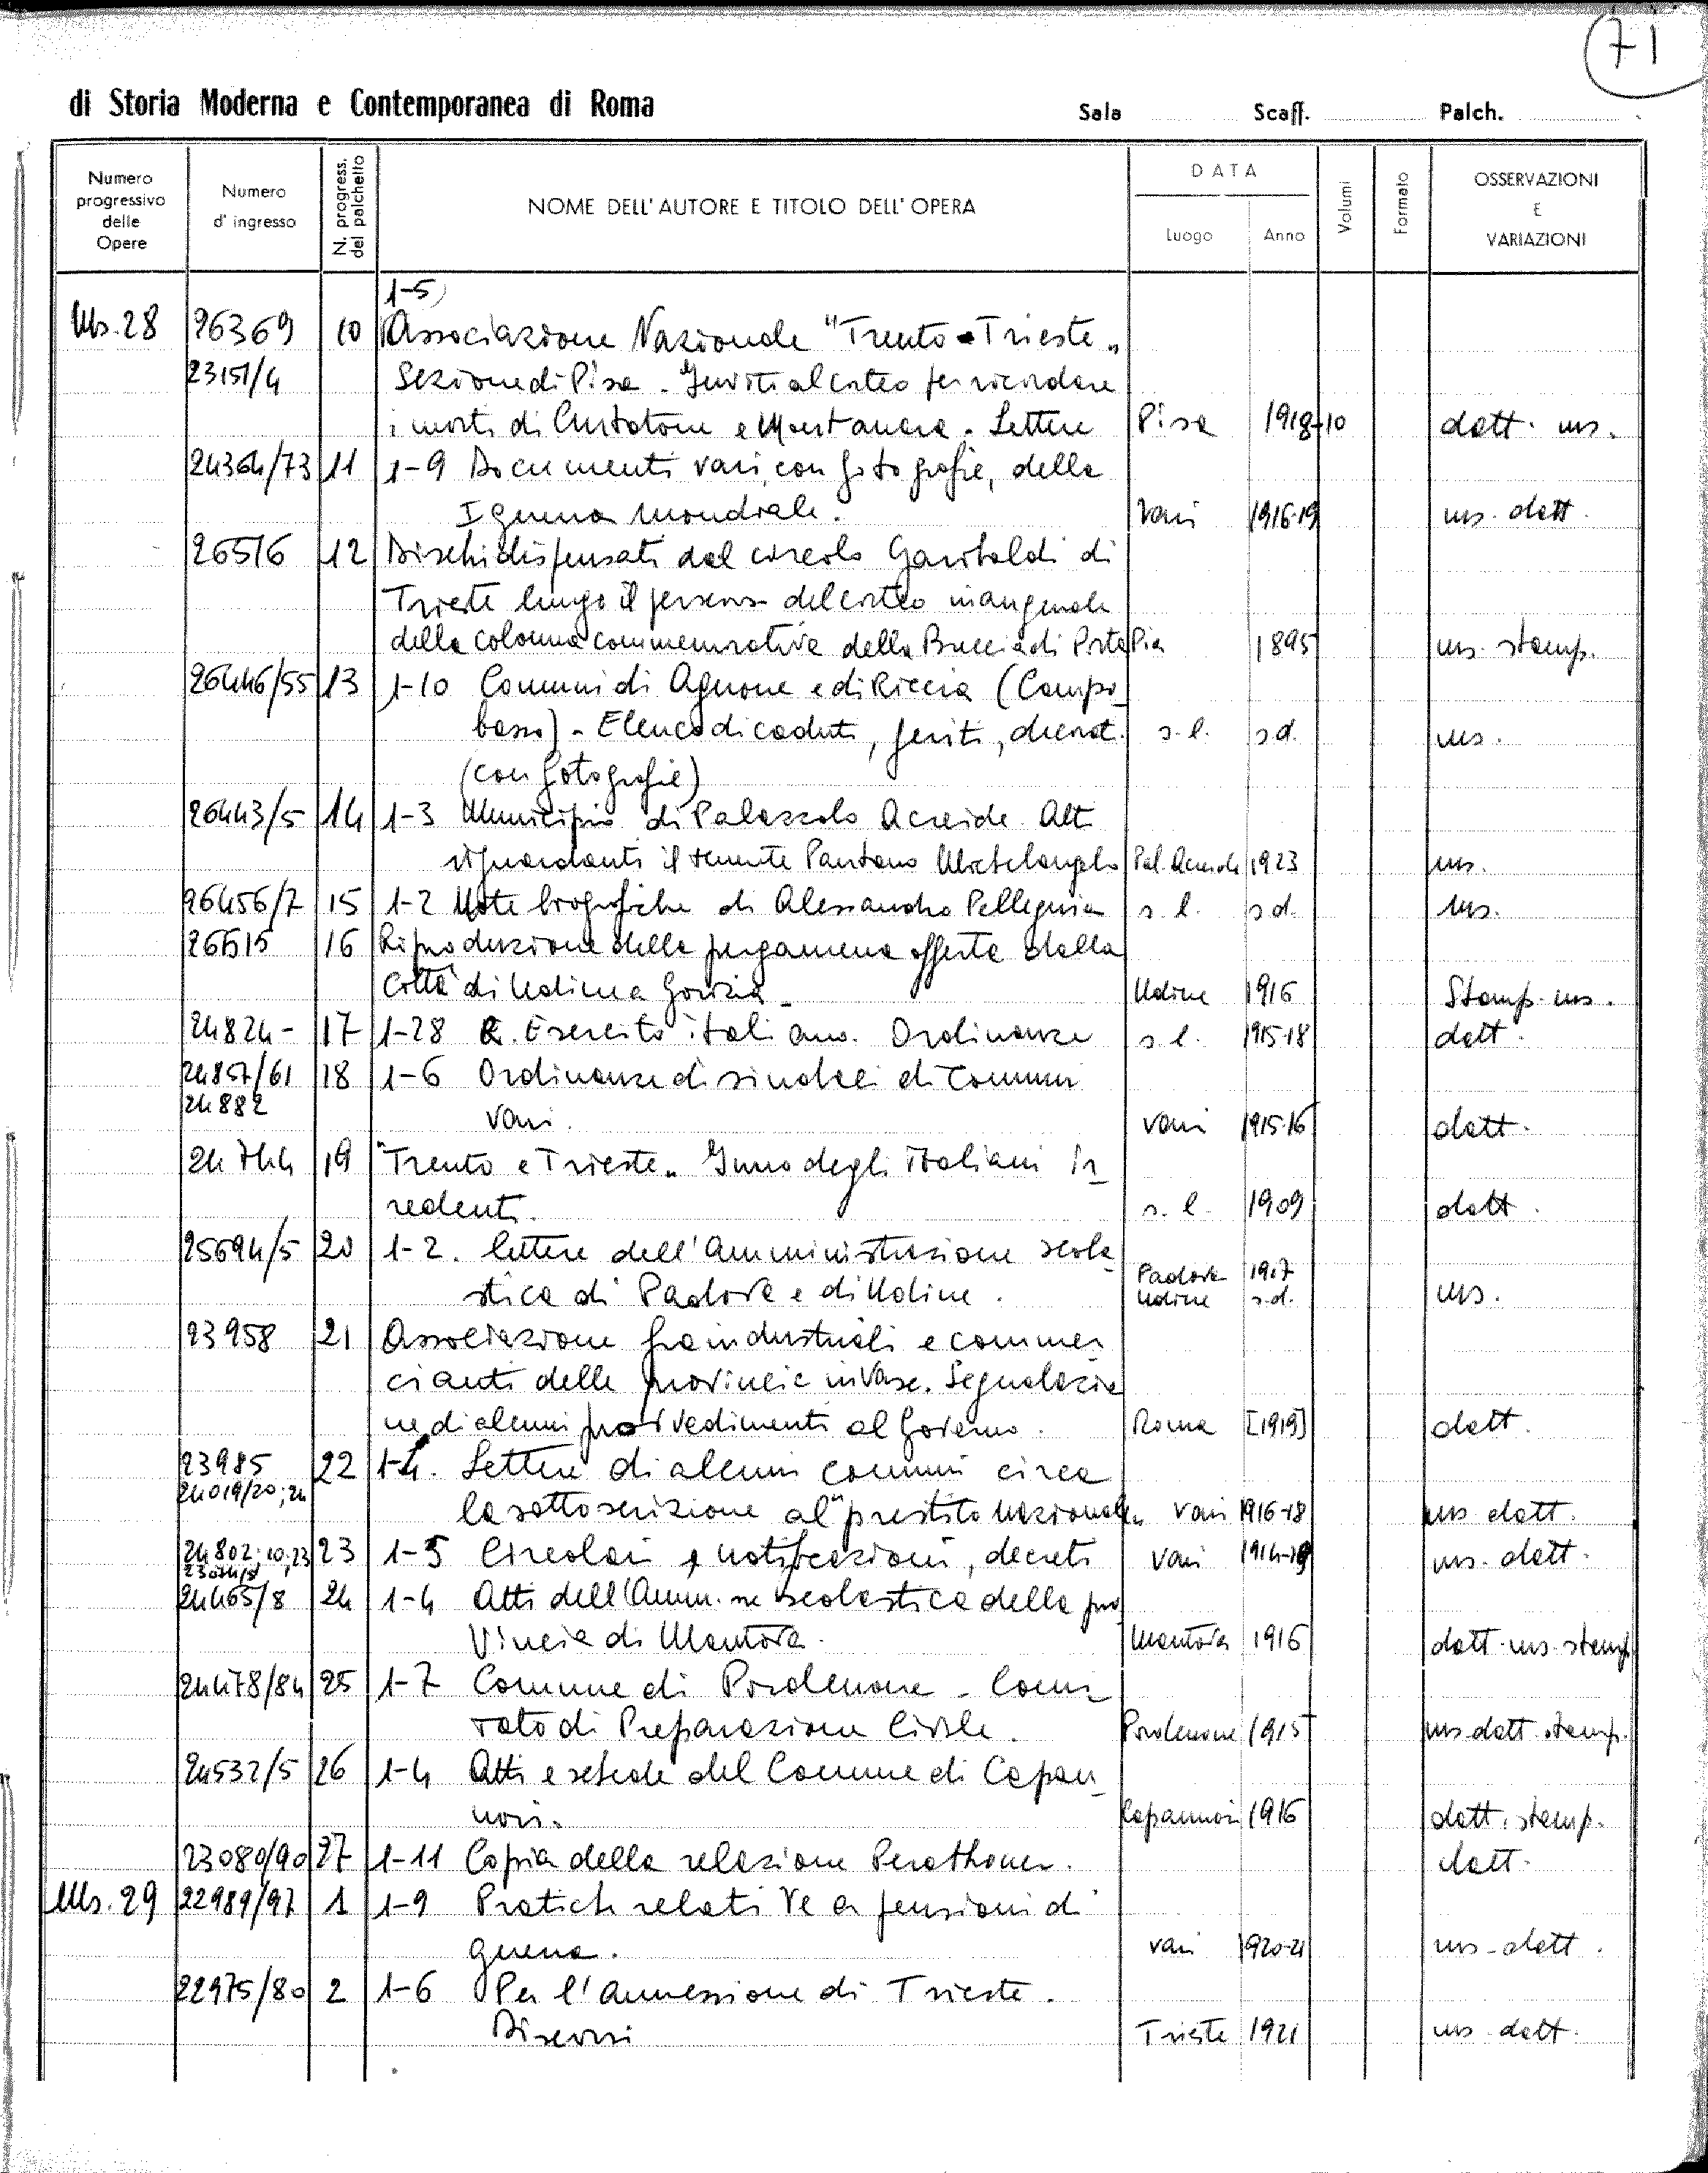 71
di Storia Moderna e Contemporanea di Roma Sala Scaff. Palch.
Numero progressivo delle Opere
Numero d'ingresso
N. progress. del palchetto
NOME DELL'AUTORE E TITOLO DELL'OPERA
DATA
Luogo Anno
Volumi
Formato
OSSERVAZIONI E VARIAZIONI
1-5)
Ms. 28 26369 10 Associazione Nazionale "Trento-Trieste"
23151/4 Sezione di Pisa. Inviti al corteo per ricordare
i morti di Curtatone e Montanara. Lettere Pisa 1918-10 datt. ms.
24364/73 11 1-9 Documenti vari, con fotografie, della
I guerra mondiale. Vari 1916-19 ms. datt.
26516 12 Dischi dispensati dal circolo Garibaldi di
Trieste lungo il percorso del corteo inaugurale
della colonna commemorativa della Breccia di Porta Pia 1895 ms. stamp.
26446/55 13 1-10 Comuni di Agnone e di Riccia (Campo
basso) - Elenco di caduti, feriti, decorat. s.l. s.d. ms.
(con fotografie)
26443/5 14 1-3 Municipio di Palazzolo Acreide. Atti
riguardanti il tenente Pantano Michelangelo Pal. Acreide 1923 ms.
26456/7 15 1-2 Note biografiche di Alessandro Pellegrini s.l. s.d. ms.
26515 16 Riproduzione della pergamena offerta dalla
Città di Udine a Gorizia. Udine 1916 Stamp. ms.
24824- 17 1-28 R. Esercito italiano. Ordinanze s.l. 1915-18 datt.
24857/61 18 1-6 Ordinanze di sindaci di Comuni
24882 vari. vari 1915-16 datt.
24744 19 "Trento e Trieste" Inno degli italiani ir
redenti. s.l. 1909 datt.
25694/5 20 1-2. lettere dell'Amministrazione scola
stica di Padova e di Udine. Padova 1917 ms.
Udine s.d.
23958 21 Associazione fra industriali e commer
cianti delle provincie invase. Segnalazio
ne di alcuni provvedimenti al Governo. Roma [1919] datt.
23985 22 1-4. Lettere di alcuni comuni circa
24019/20; 24 la sottoscrizione al "prestito nazionale" vari 1916-18 ms. datt.
24802; 10; 23 23 1-5 Circolari, notificazioni, decreti vari 1914-19 ms. datt.
24465/8 24 1-4 Atti dell'Amm.ne scolastica della pro
vincia di Mantova. Mantova 1916 datt. ms. stamp.
24478/84 25 1-7 Comune di Pordenone - Comi
tato di Preparazione Civile. Pordenone 1915 ms. datt. stamp.
24532/5 26 1-4 Atti e schede del Comune di Capan
nori. Capannori 1916 datt. stamp.
23080/90 27 1-11 Copia della relazione Perathoner. datt.
Ms. 29 22989/97 1 1-9 Pratiche relative a pensioni di
guerra. vari 1920-21 ms. datt.
22975/80 2 1-6 Per l'annessione di Trieste.
Discorsi Trieste 1921 ms. datt.